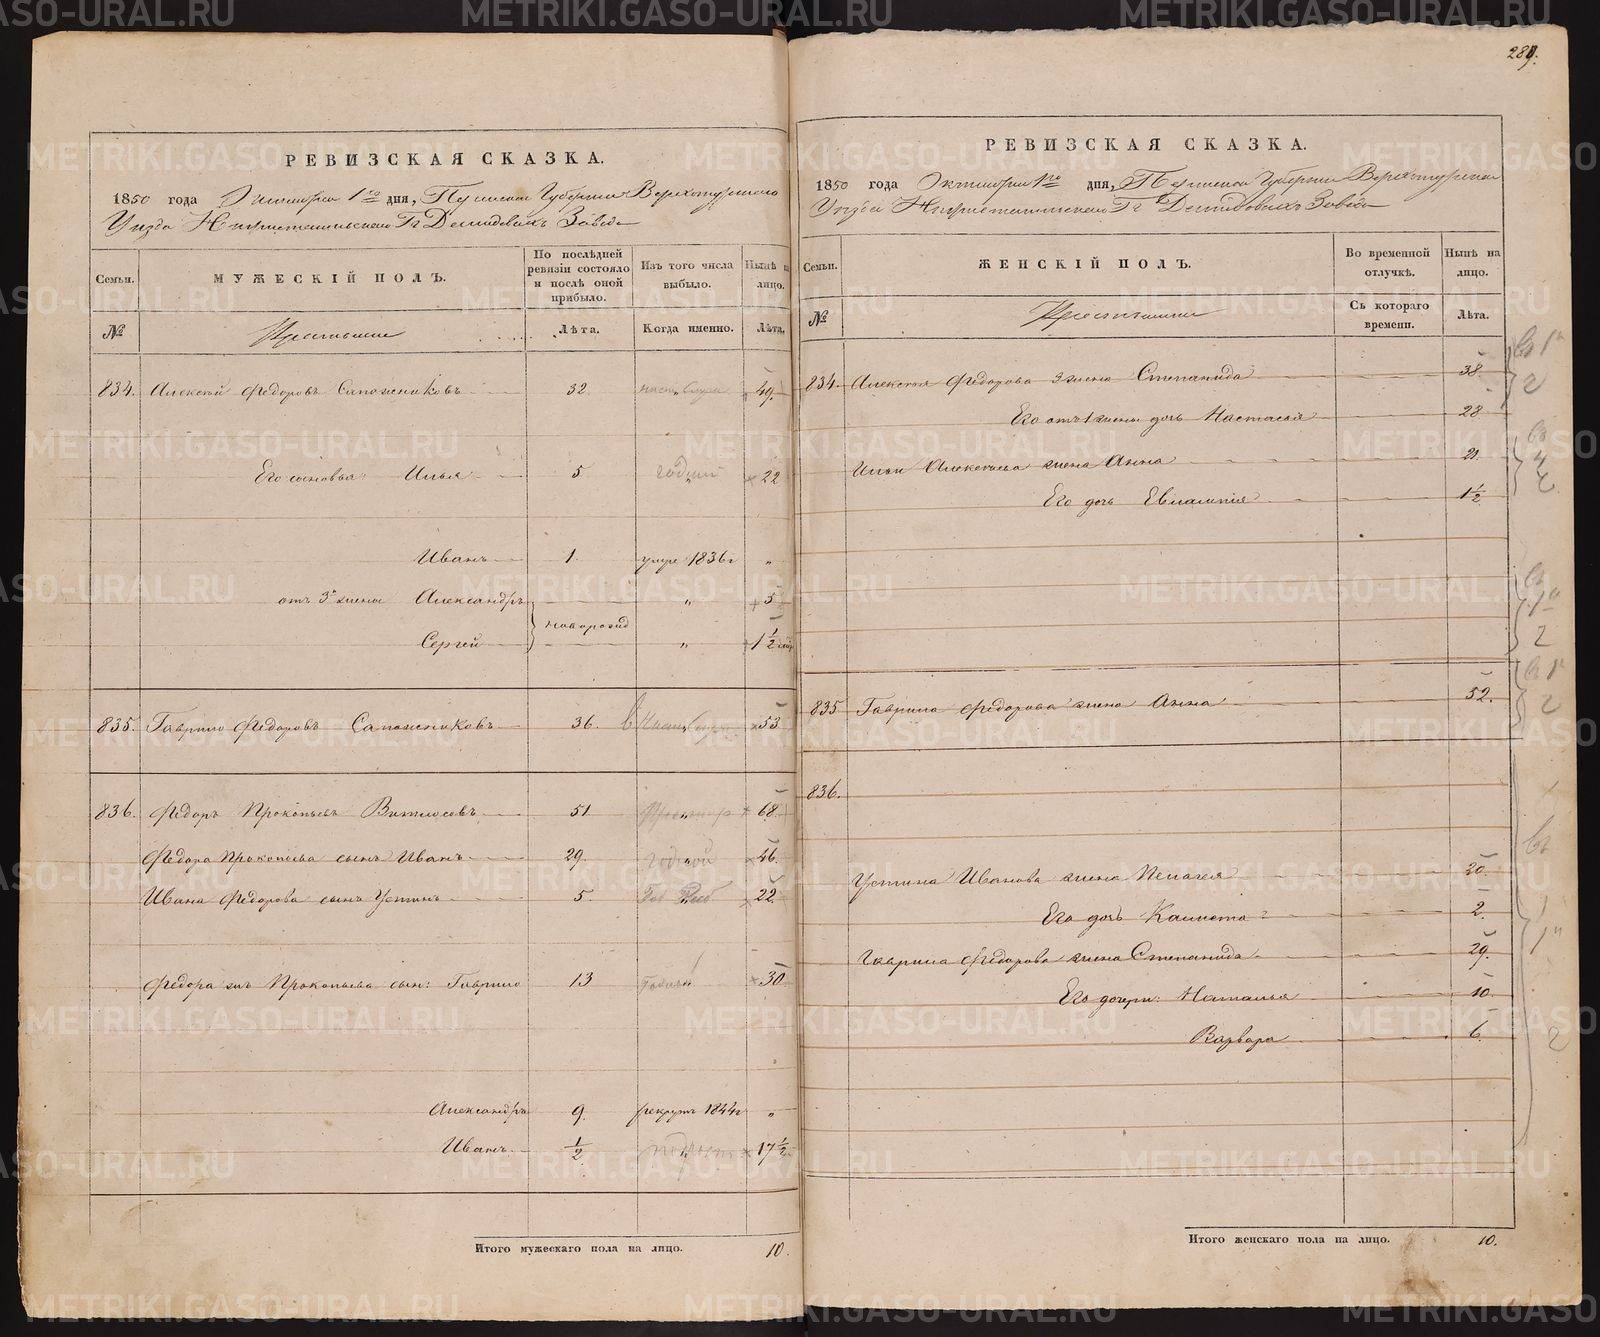 289.
РЕВИЗСКАЯ СКАЗКА.
1850 года Октября 1го дня, Пермской Губернии Верхотурскаго
Уѣзда Нижнетагильскаго Гг Демидовыхъ Завода
Семьи. МУЖЕСКІЙ ПОЛЪ. По послѣдней ревизіи состояло и послѣ оной прибыло. Изъ того числа выбыло. Нынѣ на лицо.
№ Крестьяне Лѣта. Когда именно. Лѣта.
834. Алексѣй Федоровъ Сапожниковъ 32. 49.
Его сыновья: Илья 5 годный 22
Иванъ 1. умре 1836г „
отъ 3й жены Александръ „ 5
новорожд
Сергѣй „ 1 1/2
835. Гаврило Федоровъ Сапожниковъ 36. 53
836. Федоръ Прокопьевъ 51 68
Федора Прокопьева сынъ Иванъ 29. годной 46
Ивана Федорова сынъ Устинъ 5. 22
Федора Прокопьева сын: Гаврило 13 30
Александръ 9. рекрутъ 1844г „
Иванъ 1/2 17 1/2
Итого мужескаго пола на лицо. 10.
РЕВИЗСКАЯ СКАЗКА.
1850 года Октября 1го дня, Пермской Губернии Верхотурскаго
Уѣзда Нижнетагильскаго Гг Демидовыхъ Завода
Семьи. ЖЕНСКІЙ ПОЛЪ. Во временной отлучкѣ. Нынѣ на лицо.
№ Крестьянки Съ котораго времени. Лѣта.
834. Алексѣя Федорова 3 жена Степанида 38
Его отъ 1 жены дочь Настасья 28
Ильи Алексѣева жена Анна 21.
Его дочь Евлампія 1 1/2
835 Гаврила Федорова жена Анна 52.
836.
Устина Иванова жена Пелагея 20.
Его дочь 2.
Гаврила Федорова жена Степанида 29.
Его дочери: Наталья 10
Варвара 6.
Итого женскаго пола на лицо. 10.
METRIKI.GASO-URAL.RU